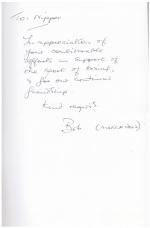 To: Nipper
In appreciation of
your considerable
efforts in support of
the sport of
& for our continued
friendship.
Kind regards
Bob